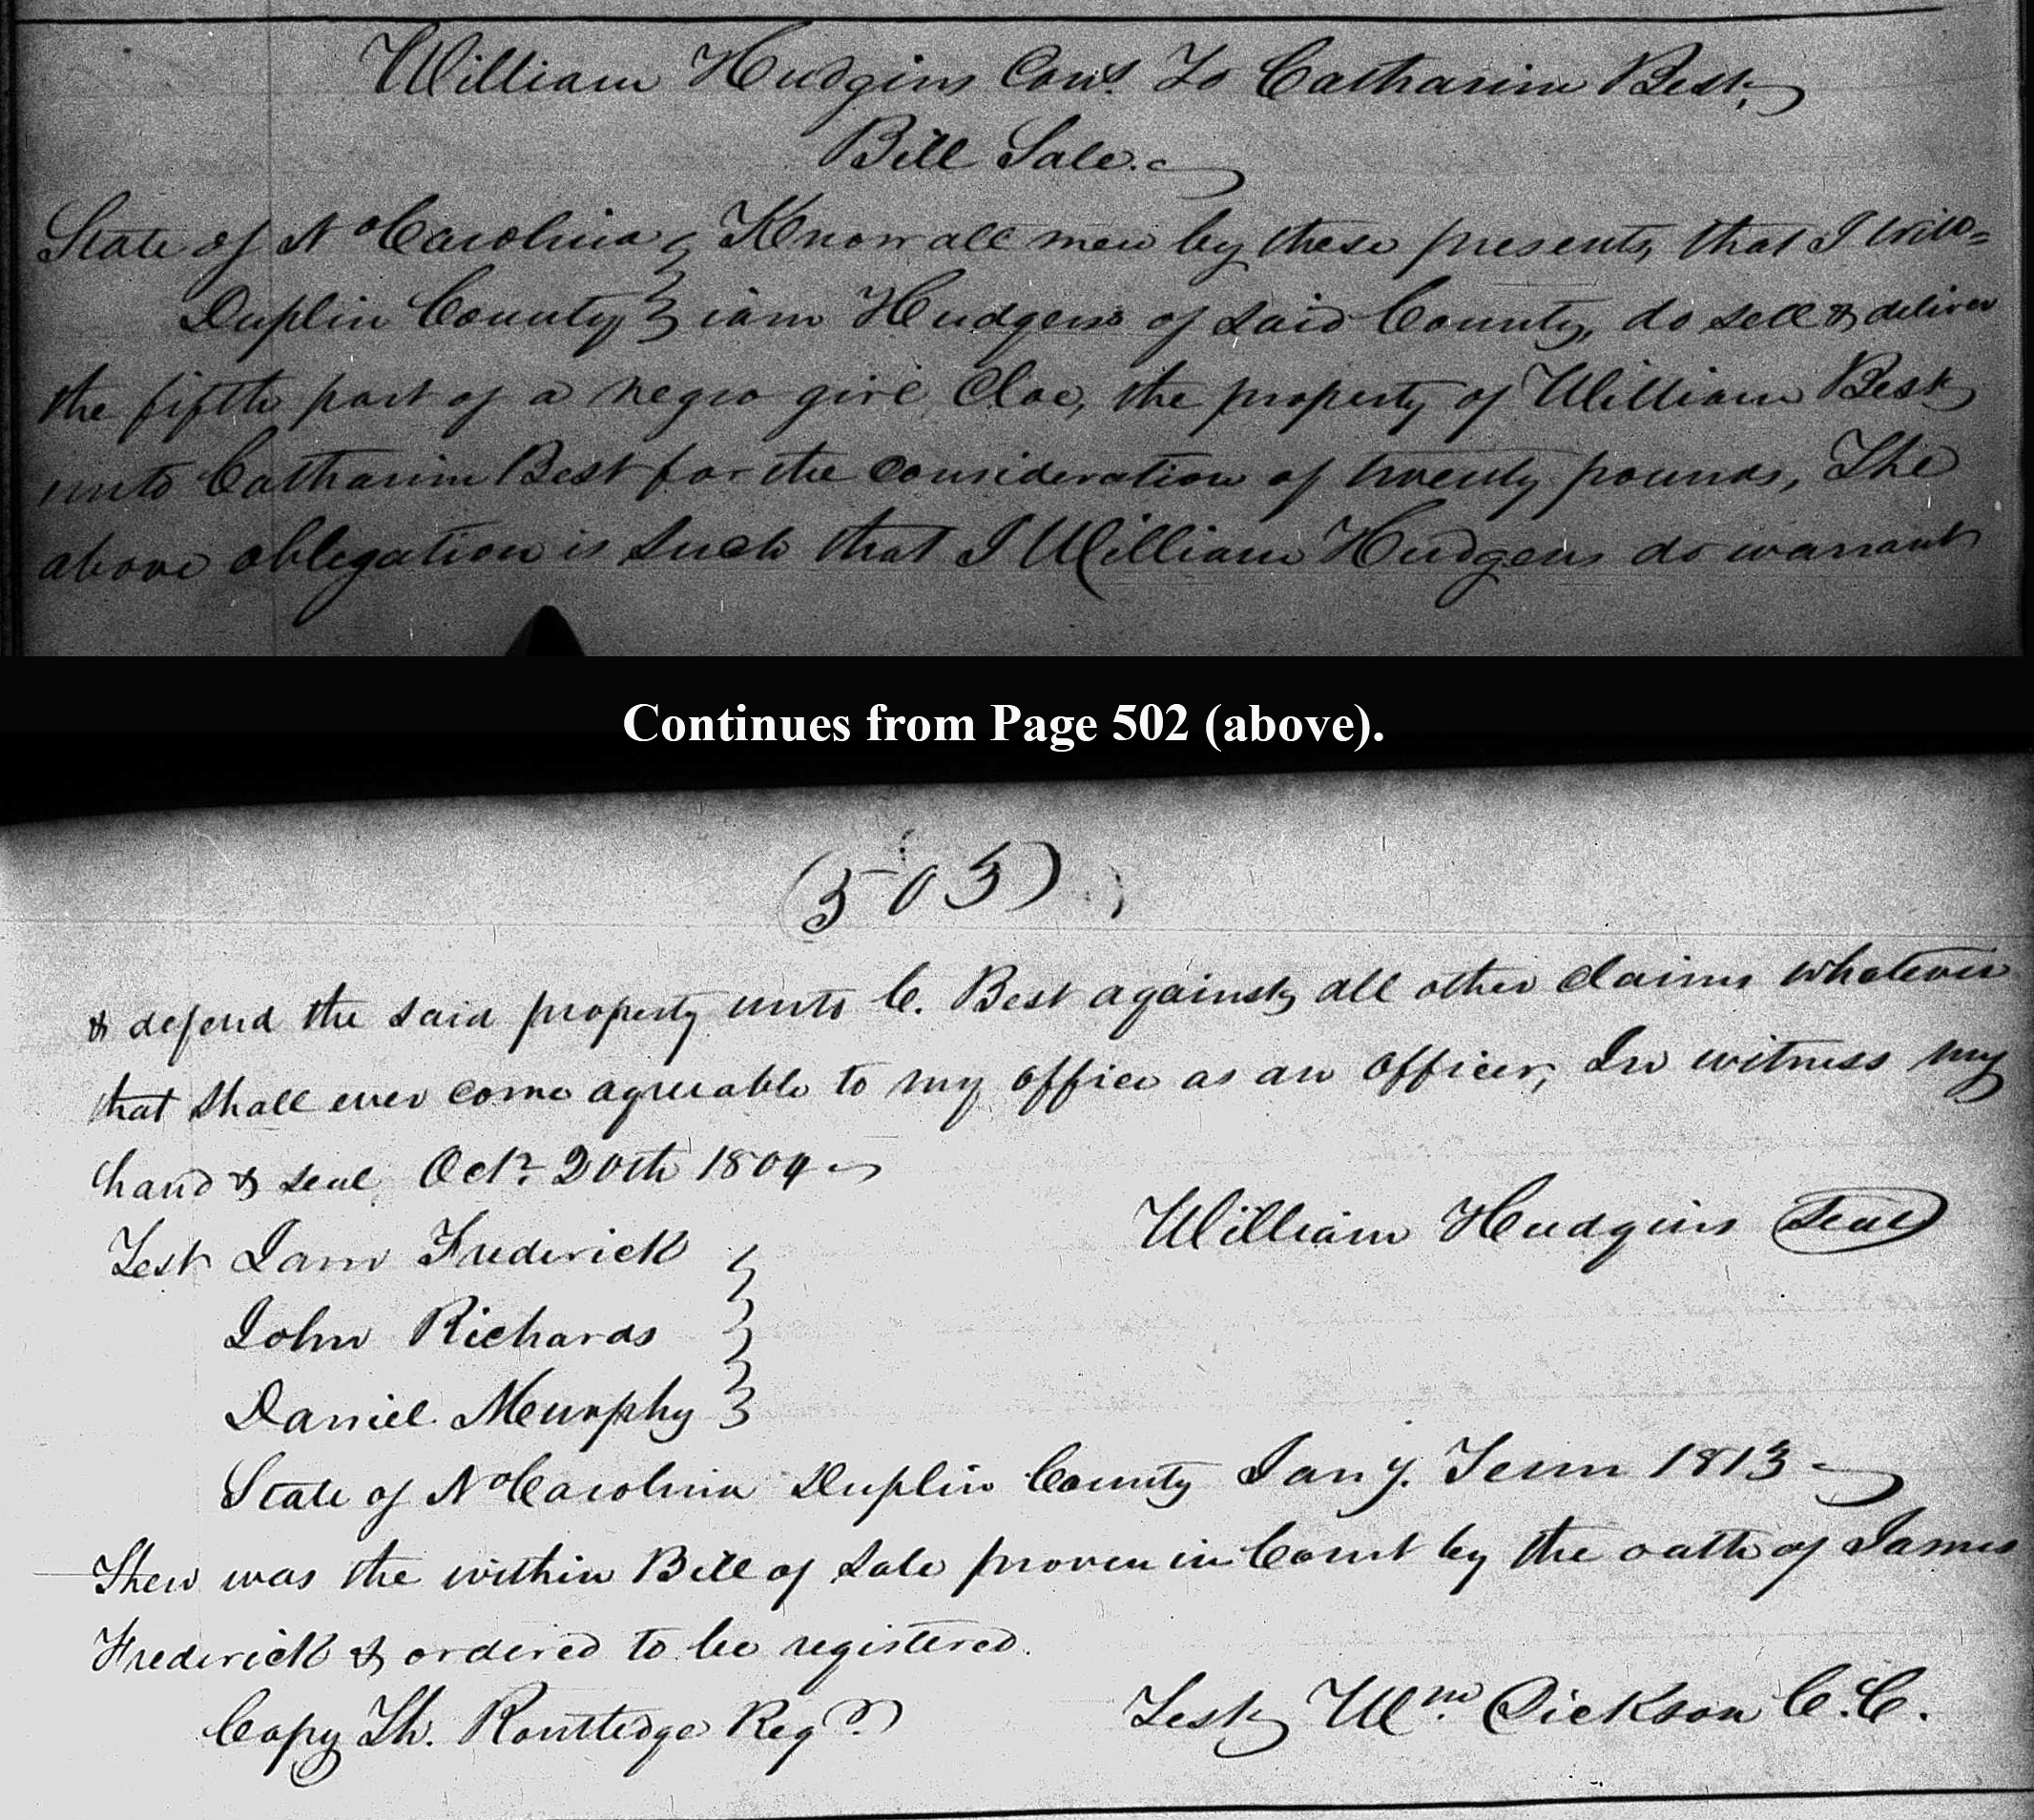 William Hudgins Cons. To Catharine Best,
Bill Sale.
State of No Carolina } Know all men by these presents, that I Will=
Duplin County } iam Hudgens of said County, do sell & deliver
the fifth part of a negro girl, Cloe, the property of William Best
unto Catharine Best for the consideration of twenty pounds, The
above oblegation is such that I William Hudgens do warrant
Continues from Page 502 (above).
(503)
& defend the said property unto C. Best against all other claims whatever
that shall ever come agreeable to my office as an officer, In witness my
hand & seal, Octr. 20th 1804
William Hudgins Seal
Test Jams Frederick
John Richards
Daniel Murphy
State of No Carolina Duplin County Jany. Term 1813
Then was the within Bill of Sale proven in Court by the oath of James
Frederick & ordered to be registered.
Test Wm. Dickson C.C.
Copy Th. Routledge Regr.